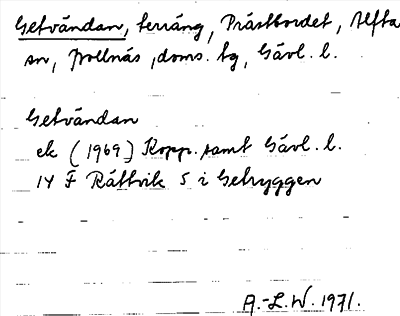 Getvändan, terräng, Prästbordet, Alfta
sn, Bollnäs, doms. tg, Gävl. l.
Getvändan
ek (1969) Kopp. samt Gävl. l.
14 F Rättvik S i Getryggen
A.-L.W. 1971.